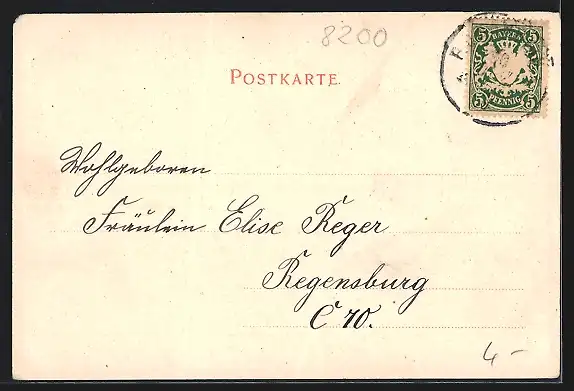 8200
POSTKARTE.
5 BAYERN 5
5 PFENNIG 5
Wohlgeboren
Fräulein Elise Reger
Regensburg
C 70.
4 -